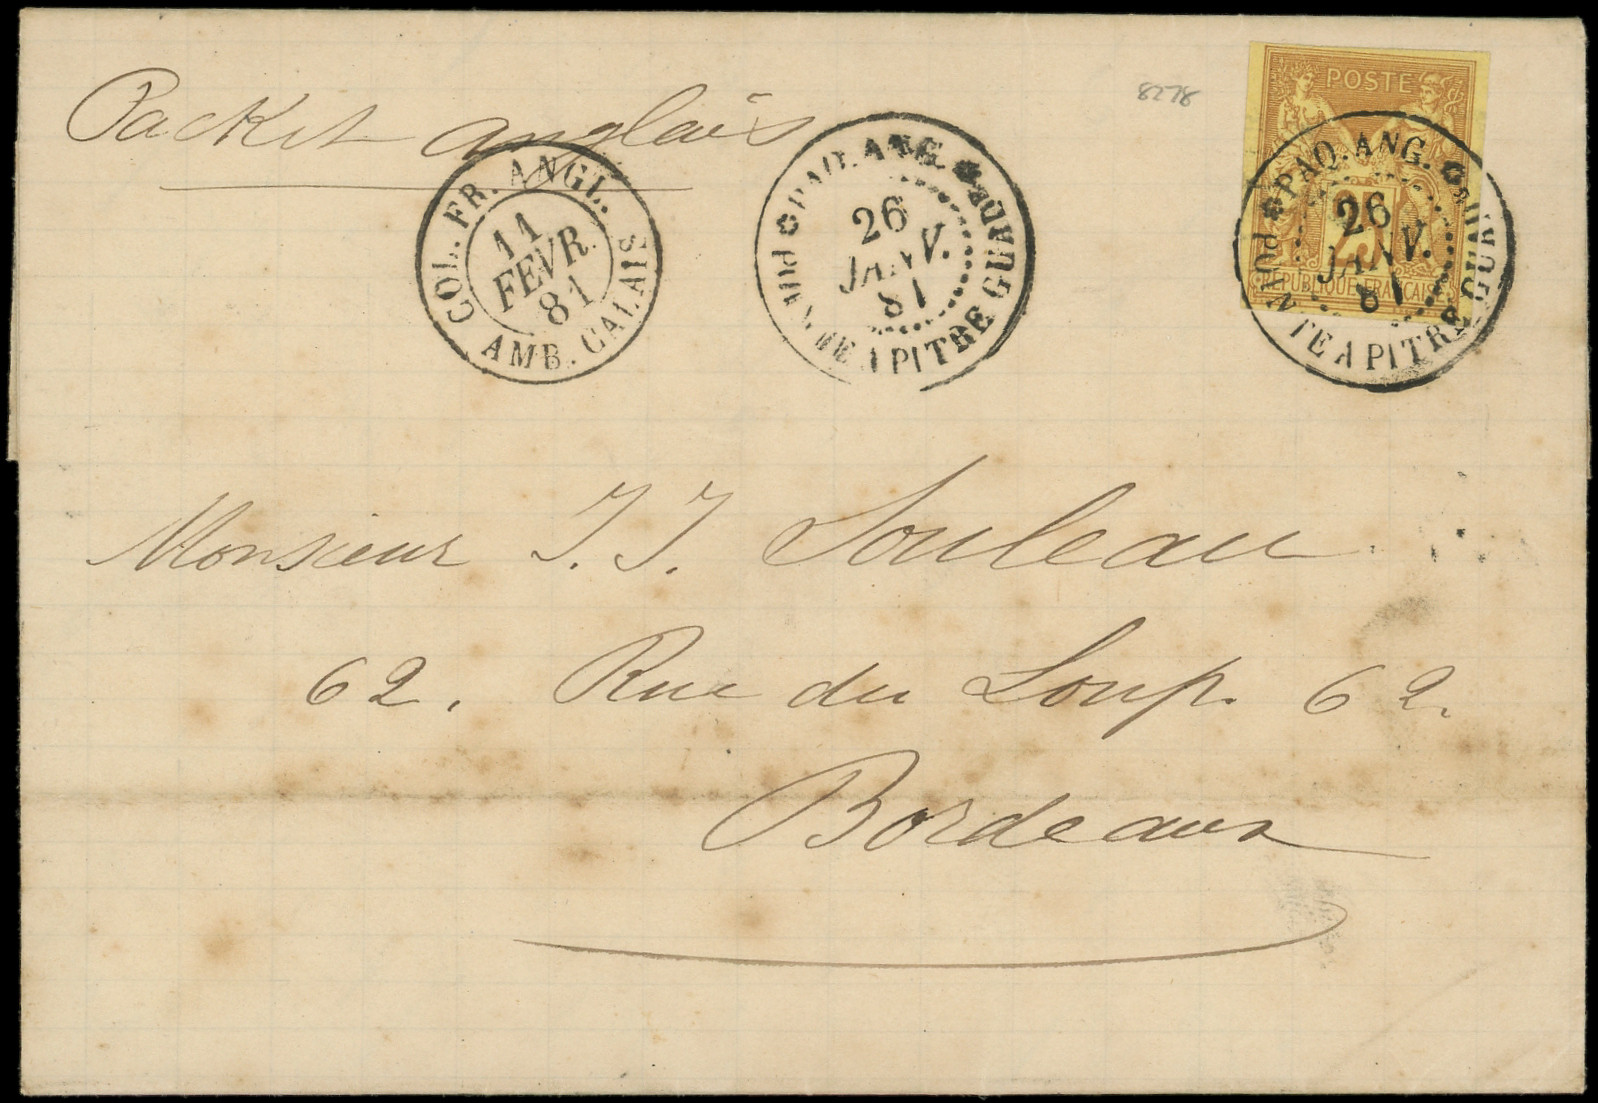 8278
Packet anglais
POSTE
25
REPUBLIQUE FRANCAISE
PAQ. ANG.
POINTE A PITRE GUADE
26
JANV.
81
PAQ. ANG.
POINTE A PITRE GUADE
26
JANV.
81
COL. FR. ANGL.
11
FEVR.
81
AMB. CALAIS
Monsieur J. J. Souleau
62. Rue du Loup. 62.
Bordeaux